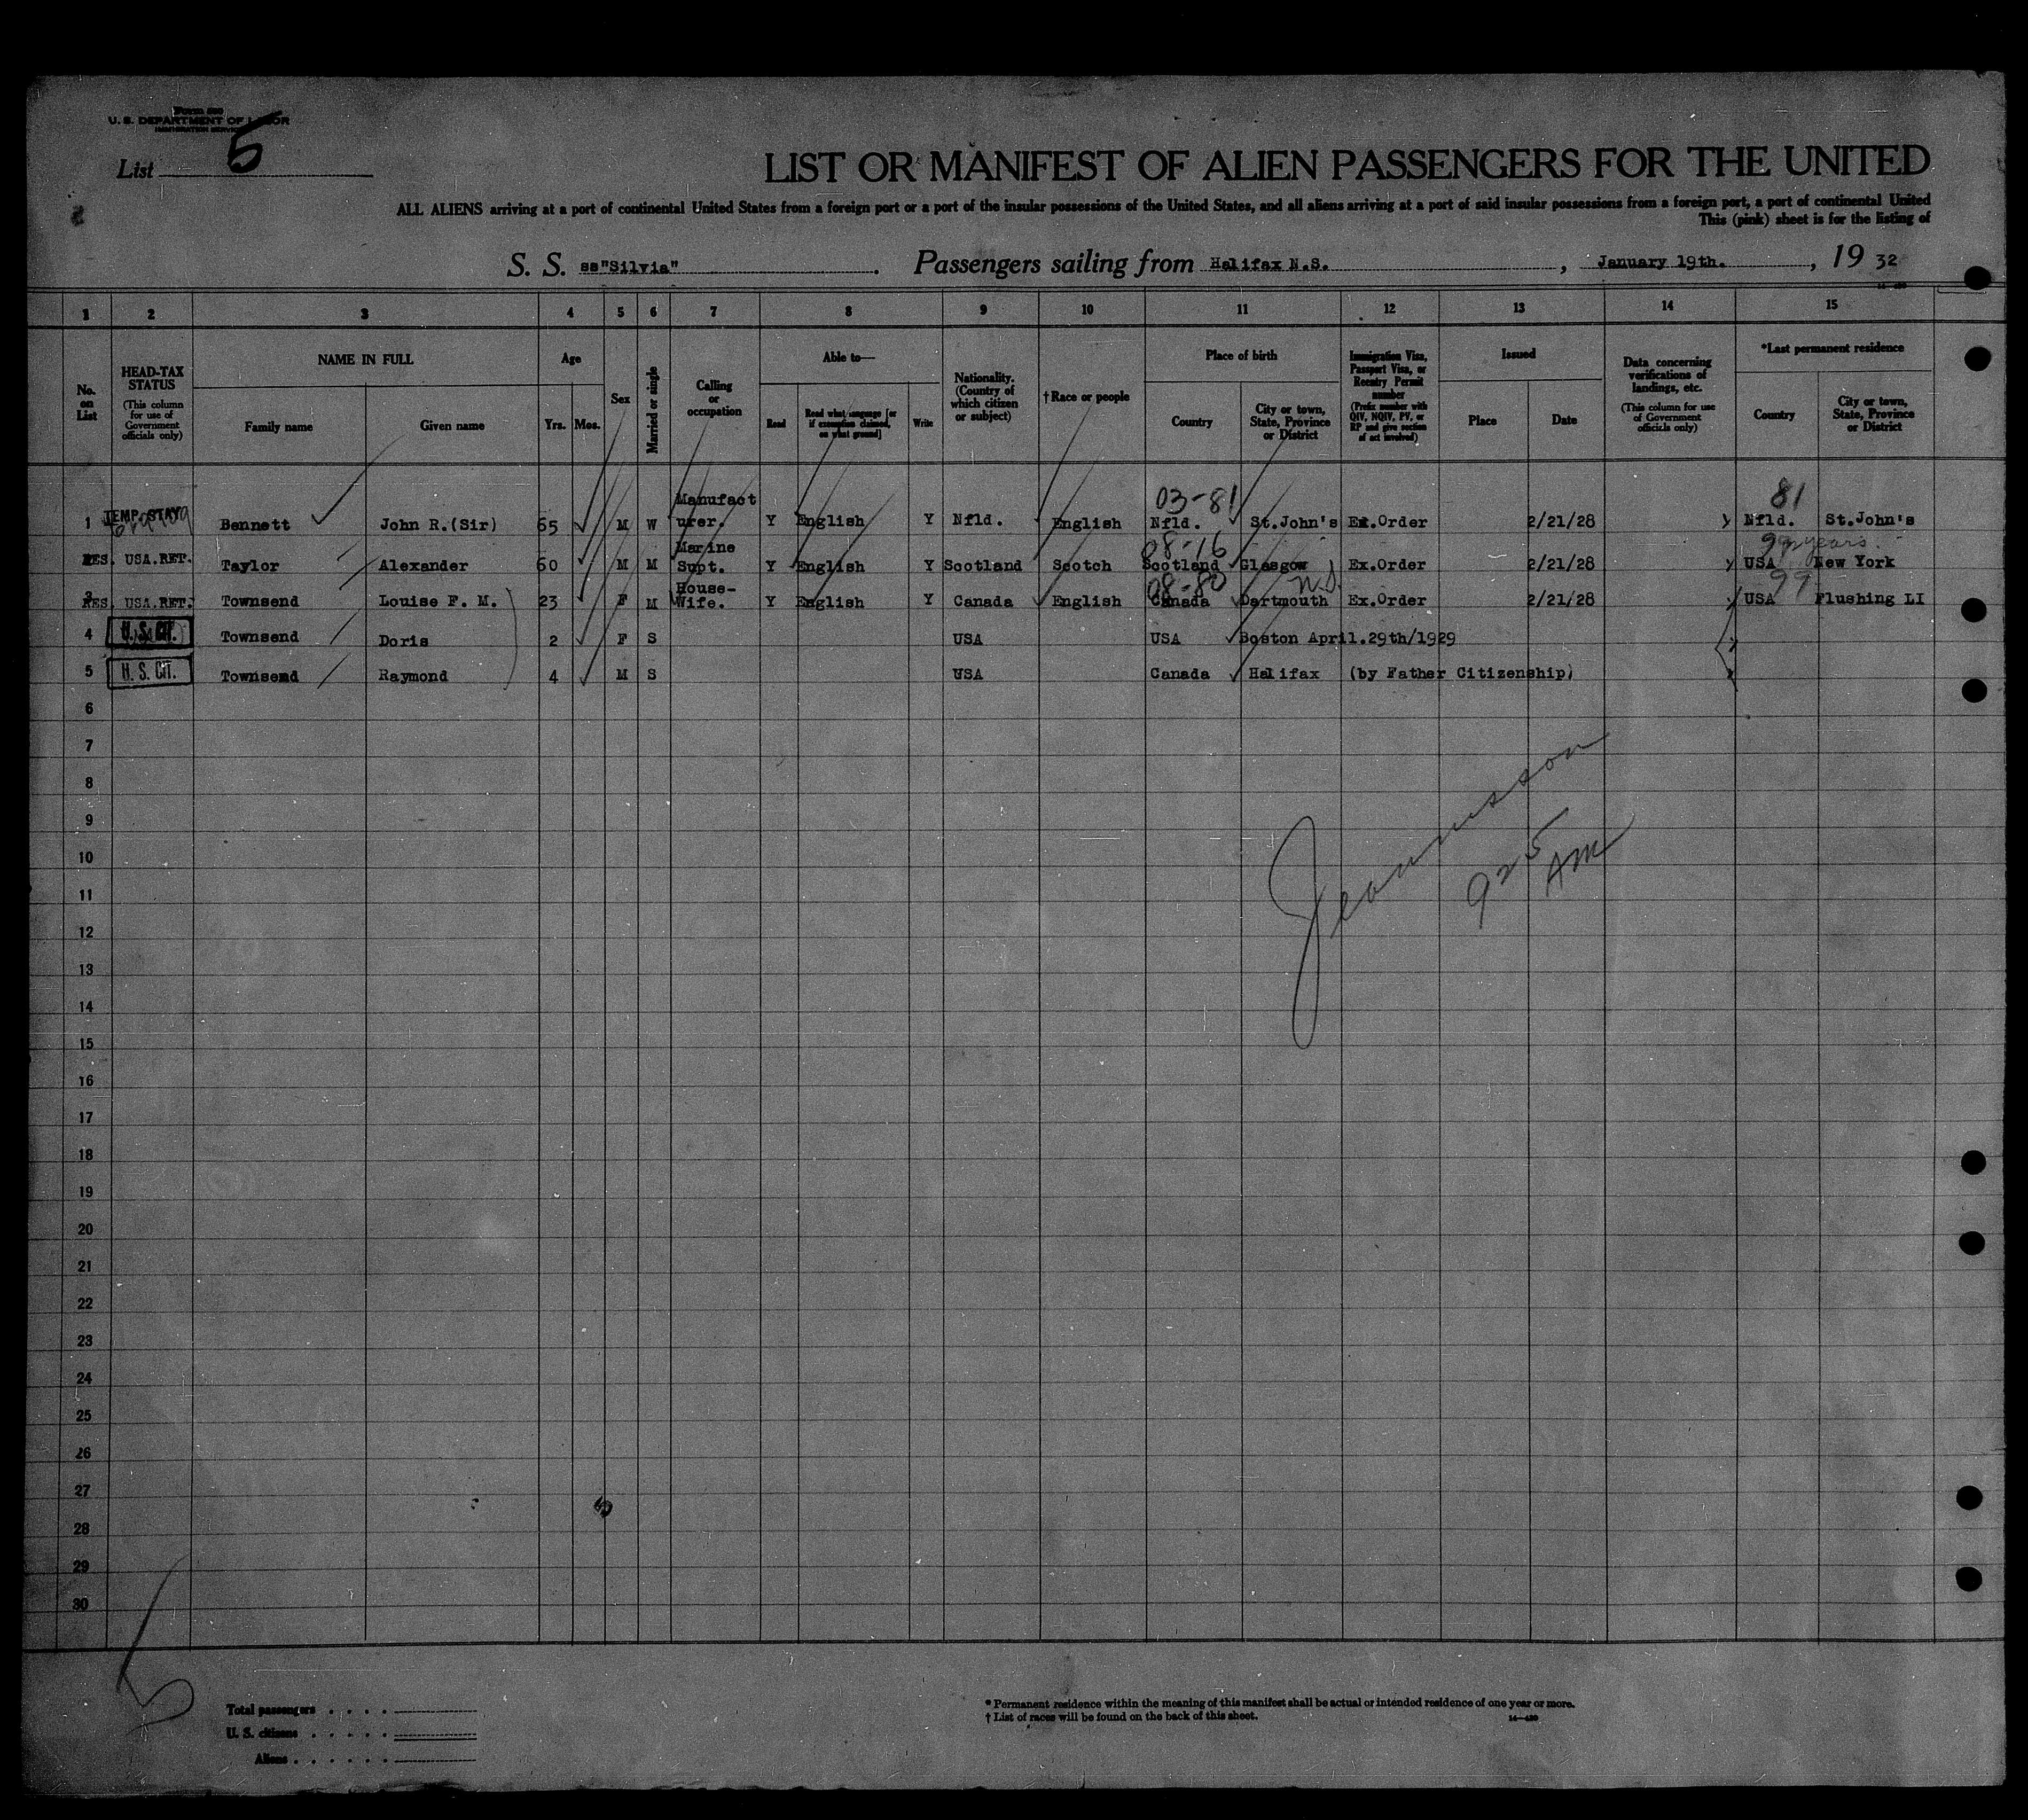 Form 500
U. S. DEPARTMENT OF LABOR
IMMIGRATION SERVICE
List 5
LIST OR MANIFEST OF ALIEN PASSENGERS FOR THE UNITED
ALL ALIENS arriving at a port of continental United States from a foreign port or a port of the insular possessions of the United States, and all aliens arriving at a port of said insular possessions from a foreign port, a port of continental United
This (pink) sheet is for the listing of
S. S. ss"Silvia" . Passengers sailing from Halifax N.S. , January 19th. , 19 32
1 2 3 4 5 6 7 8 9 10 11 12 13 14 15
No. on List
HEAD-TAX STATUS
(This column for use of Government officials only)
NAME IN FULL
Family name Given name
Age
Yrs. Mos.
Sex
Married or single
Calling or occupation
Able to—
Read Read what language [or if exemption claimed, on what ground] Write
Nationality. (Country of which citizen or subject)
†Race or people
Place of birth
Country City or town, State, Province or District
Immigration Visa, Passport Visa, or Reentry Permit number
(Prefix number with QIV, NQIV, PV, or RP and give section of act involved)
Issued
Place Date
Data concerning verifications of landings, etc.
(This column for use of Government officials only)
*Last permanent residence
Country City or town, State, Province or District
03-81 81
1 TEMP. STAY Bennett John R.(Sir) 65 M W Manufacturer. Y English Y Nfld. English Nfld. St.John's Ex.Order 2/21/28 Nfld. St.John's
08-16 99 years
RES. USA.RET. Taylor Alexander 60 M M Marine Supt. Y English Y Scotland Scotch Scotland Glasgow Ex.Order 2/21/28 USA New York
08-80 N.S. 99
3 RES. USA.RET. Townsend Louise F. M. 23 F M House-Wife. Y English Y Canada English Canada Dartmouth Ex.Order 2/21/28 USA Flushing LI
4 U. S. CIT. Townsend Doris 2 F S USA USA Boston April.29th/1929
5 U. S. CIT. Townsend Raymond 4 M S USA Canada Halifax (by Father Citizenship)
6
7
8
9
10
925 AM
11
12
13
14
15
16
17
18
19
20
21
22
23
24
25
26
27
5
28
29
30
5
Total passengers . . . .
U. S. citizens . . . . .
Aliens . . . . . .
* Permanent residence within the meaning of this manifest shall be actual or intended residence of one year or more.
† List of races will be found on the back of this sheet.
14—430